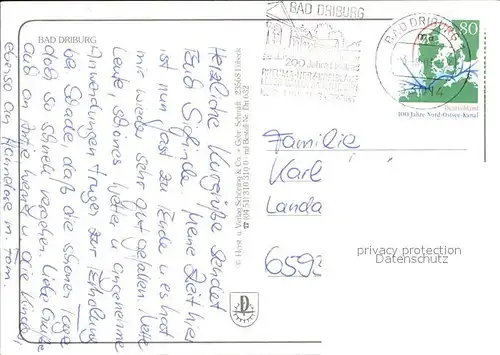 BAD DRIBURG
Herzliche Kurgrüße sendet
Euch Schinda. Meine Zeit hier
ist nun fast zu Ende u es hat
mir wieder sehr gut gefallen. Nette
Leute, schönes Wetter u angenehme
Anwendungen tragen zur Erholung
bei. Schade, daß die schönen Tage
daß so schnell vergehen. Liebe Grüße
auch an Antje Werner u die Kinder,
ebenso an Hannelore m. Tom.
© Horst u. Verlag Schöning & Co. + Gebr. Schmidt, 23568 Lübeck
☎ (04 51) 3 10 33 10 und Bestell-Nr. Dri 632
BAD DRIBURG
200 Jahre Heilbad
BAD DRIBURG
80
Deutschland
100 Jahre Nord-Ostsee-Kanal
Familie
Karl
Landa
6593
privacy protection
Datenschutz